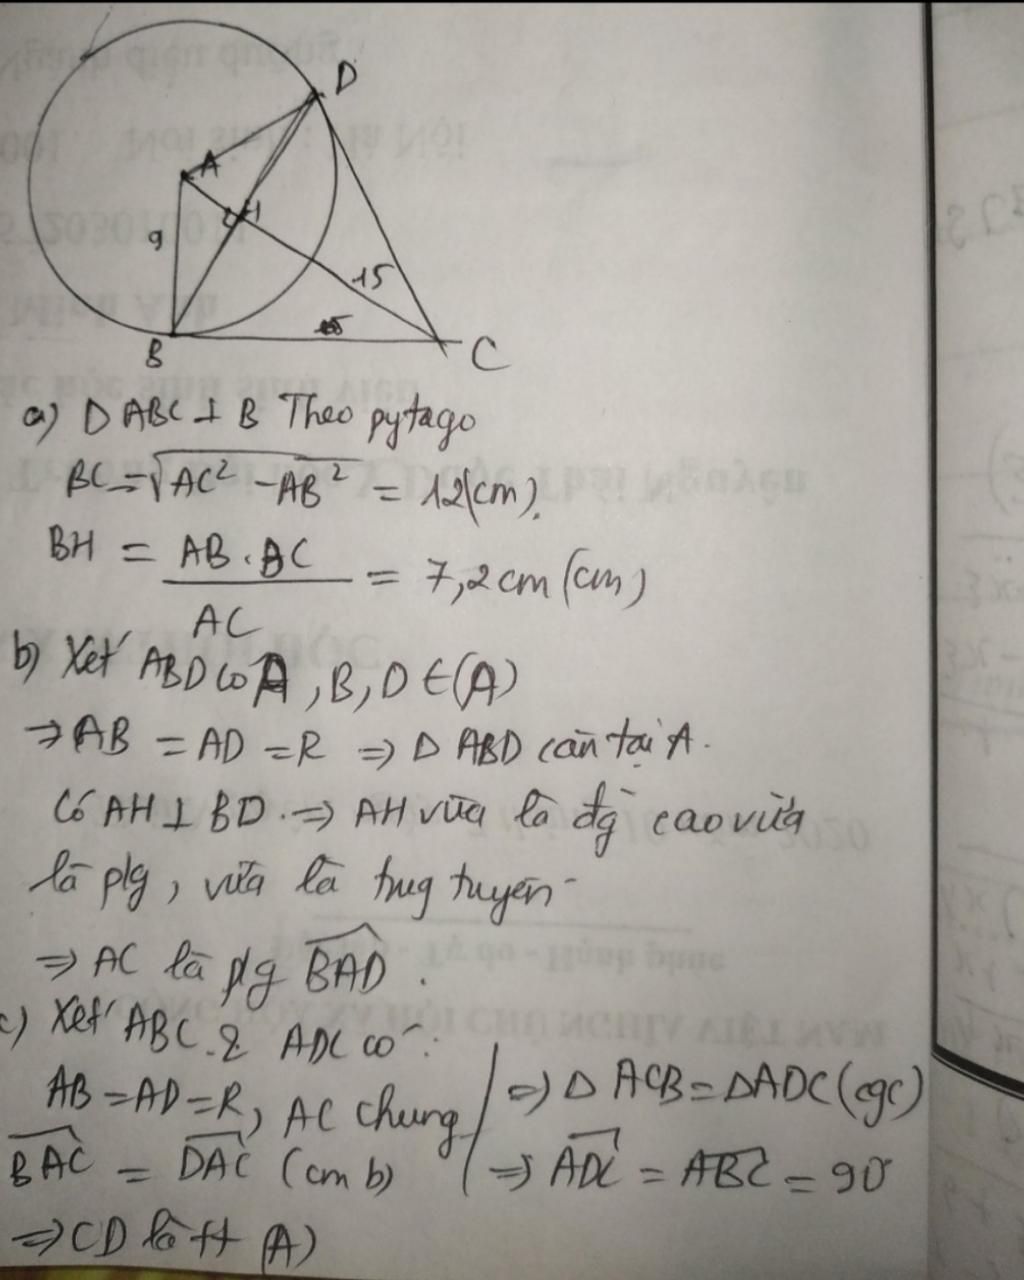 D
A
H
9
15
B
C
a) Δ ABC ⊥ B Theo pytago
BC = √AC² - AB² = 12(cm).
BH = AB . BC / AC = 7,2 cm (cm)
b) Xét ABD có A, B, D ∈ (A)
⇒ AB = AD = R ⇒ Δ ABD cân tại A.
Có AH ⊥ BD. ⇒ AH vừa là đg cao vừa
là p/g, vừa là trug tuyến
⇒ AC là p/g BAD.
c) Xét ABC & ADC có:
AB = AD = R, AC chung
BAC = DAC (cm b)
⇒ Δ ACB = ΔADC (cgc)
⇒ ADC = ABC = 90°
⇒ CD là tt (A)